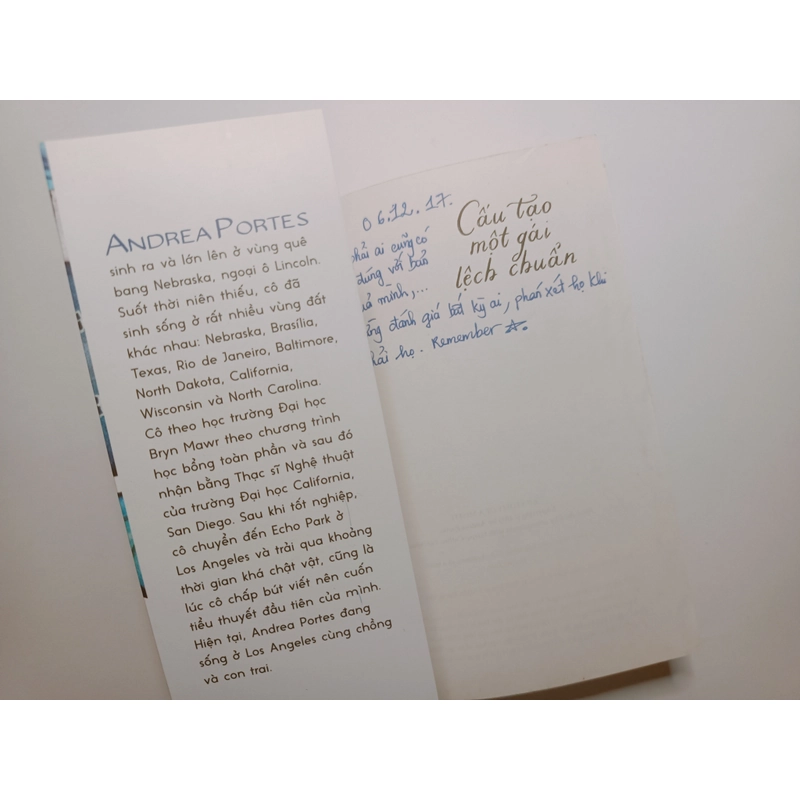 ANDREA PORTES
sinh ra và lớn lên ở vùng quê
bang Nebraska, ngoại ô Lincoln.
Suốt thời niên thiếu, cô đã
sinh sống ở rất nhiều vùng đất
khác nhau: Nebraska, Brasília,
Texas, Rio de Janeiro, Baltimore,
North Dakota, California,
Wisconsin và North Carolina.
Cô theo học trường Đại học
Bryn Mawr theo chương trình
học bổng toàn phần và sau đó
nhận bằng Thạc sĩ Nghệ thuật
của trường Đại học California,
San Diego. Sau khi tốt nghiệp,
cô chuyển đến Echo Park ở
Los Angeles và trải qua khoảng
thời gian khá chật vật, cũng là
lúc cô chấp bút viết nên cuốn
tiểu thuyết đầu tiên của mình.
Hiện tại, Andrea Portes đang
sống ở Los Angeles cùng chồng
và con trai.
Cấu tạo
một gái
lệch chuẩn
06.12.17.
ai cũng có
đúng với bản
mình,...
đánh giá bất kỳ ai, phán xét họ khi
họ. Remember